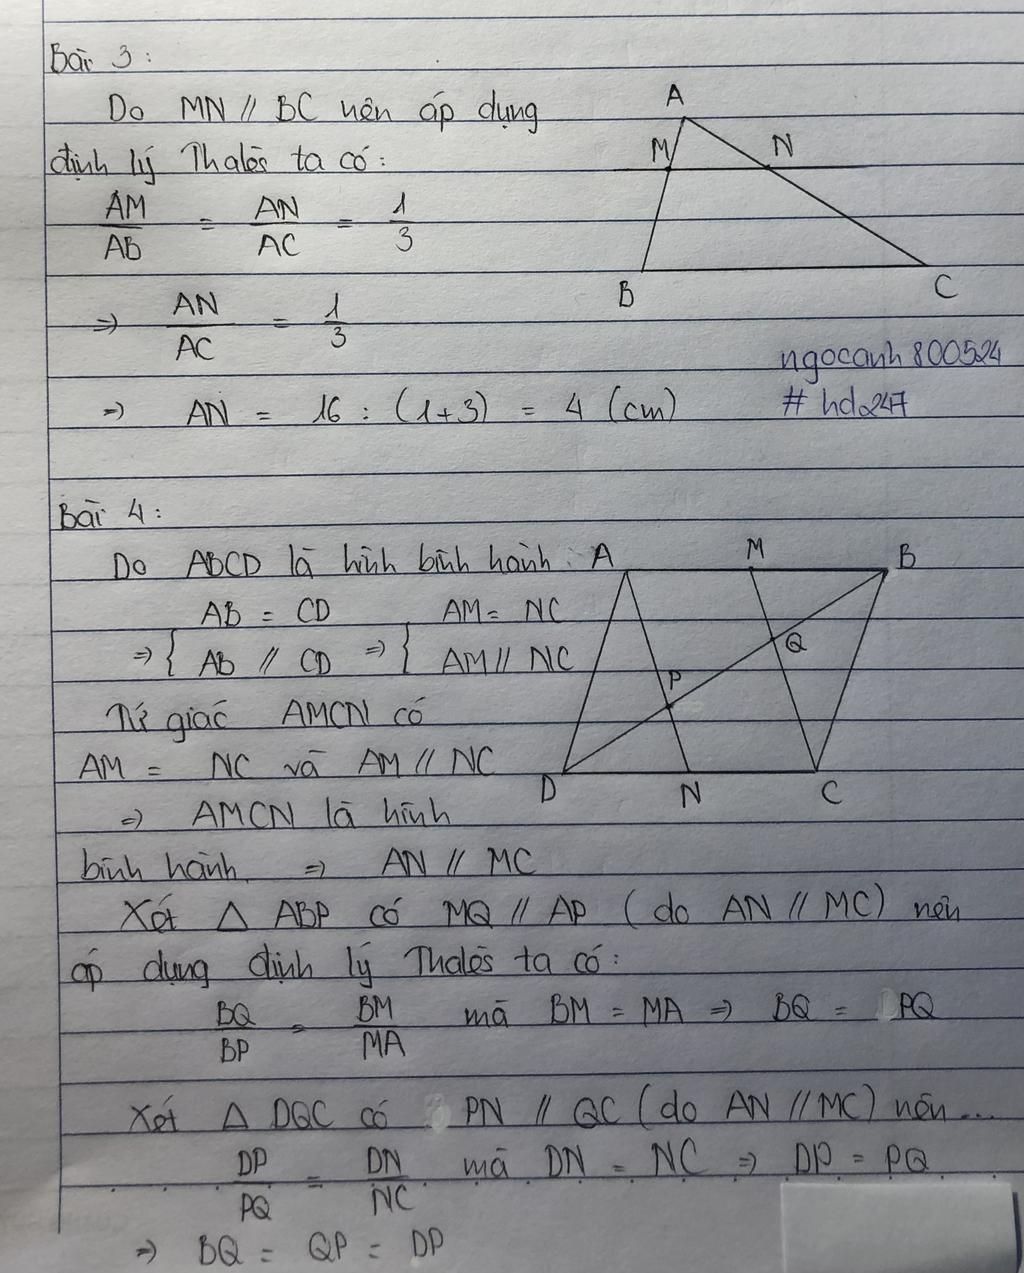 Bài 3 :
Do MN // BC nên áp dụng
định lý Thalès ta có :
AM/AB = AN/AC = 1/3
⇒ AN/AC = 1/3
⇒ AN = 16 : (1+3) = 4 (cm)
A
M N
B C
ngocanh800524
# hdo247
Bài 4 :
Do ABCD là hình bình hành :
⇒ { AB = CD ⇒ { AM = NC
AB // CD AM // NC
Tứ giác AMCN có
AM = NC và AM // NC
⇒ AMCN là hình
bình hành. ⇒ AN // MC
A M B
Q
P
D N C
Xét △ ABP có MQ // AP ( do AN // MC) nên
áp dụng định lý Thalès ta có :
BQ/BP = BM/MA mà BM = MA ⇒ BQ = PQ
Xét △ DQC có PN // QC (do AN // MC) nên ...
DP/PQ = DN/NC mà DN = NC ⇒ DP = PQ
⇒ BQ = QP = DP